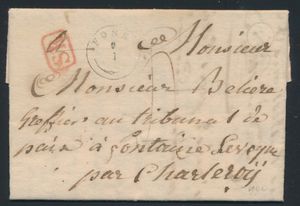 SR
A Monsieur
Monsieur Belière
Greffier au tribunal de
paix a fontaine Leveque
par Charleroÿ